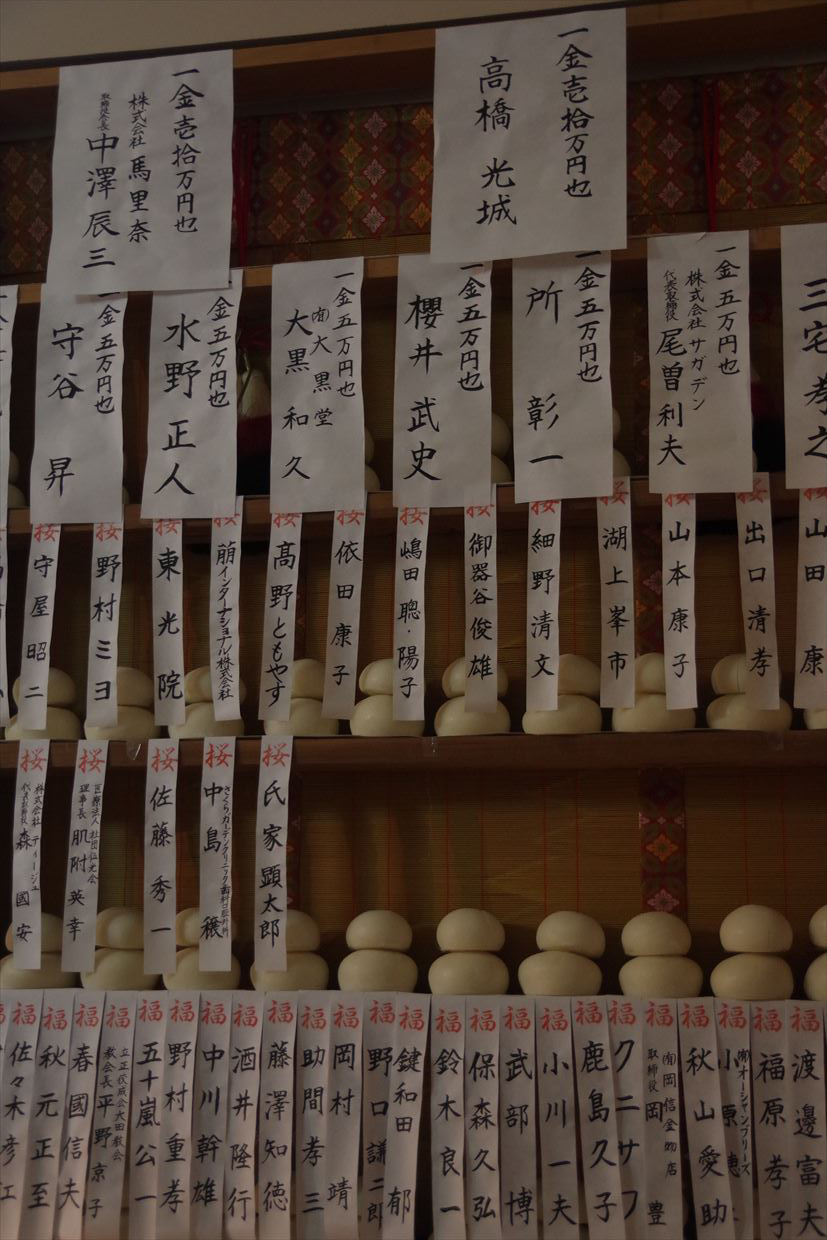 一金壱拾万円也
高橋 光城
一金壱拾万円也
株式会社 馬里奈
取締役会長 中澤辰三
三宅孝之
一金五万円也
株式会社 サガデン
代表取締役 尾曽利夫
一金五万円也
所 彰一
一金五万円也
櫻井武史
一金五万円也
㈲大黒堂
大黒和久
金五万円也
水野正人
一金五万円也
守谷 昇
桜 山田康
桜 出口清孝
桜 山本康子
桜 湖上峯市
桜 細野清文
桜 御器谷俊雄
桜 嶋田聰・陽子
桜 依田康子
桜 髙野ともやす
桜 萠インターナショナル株式会社
桜 東光院
桜 野村ミヨ
桜 守屋昭二
桜 氏家顕太郎
桜 さくらガーデンクリニック歯科口腔外科
中島 穣
桜 佐藤秀一
桜 医療法人 社団伍光会
理事長 肌附英幸
桜 株式会社 ティージュ
代表取締役 森 國安
福 渡邊富夫
福 福原孝子
福 秋山愛助
福 ㈲岡信金物店
取締役 岡 豊
福 クニサワ
福 鹿島久子
福 小川一夫
福 武部 博
福 保森久弘
福 鈴木良一
福 鍵和田 郁
福 野口謙二郎
福 岡村 靖
福 助間孝三
福 藤澤知徳
福 酒井隆行
福 中川幹雄
福 野村重孝
福 五十嵐公一
福 立正佼成会大田教会
教会長 平野京子
福 春國信夫
福 秋元正至
福 佐々木彦江